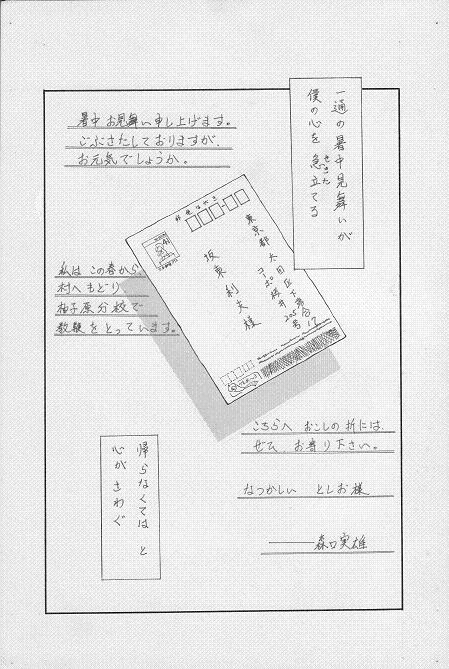 一通の暑中見舞いが
僕の心を急立てる
せきた
暑中お見舞い申し上げます。
ごぶさたしておりますが、
お元気でしょうか。
郵便はがき
41
東京都大田区下落合17
コーポ桜井205号
坂東利夫様
私はこの春から、
村へもどり
柚子原分校で
教鞭をとっています。
こちらへおこしの折には、
ぜひ、お寄り下さい。
なつかしい としお様
——森口実雄
帰らなくては と
心がさわぐ